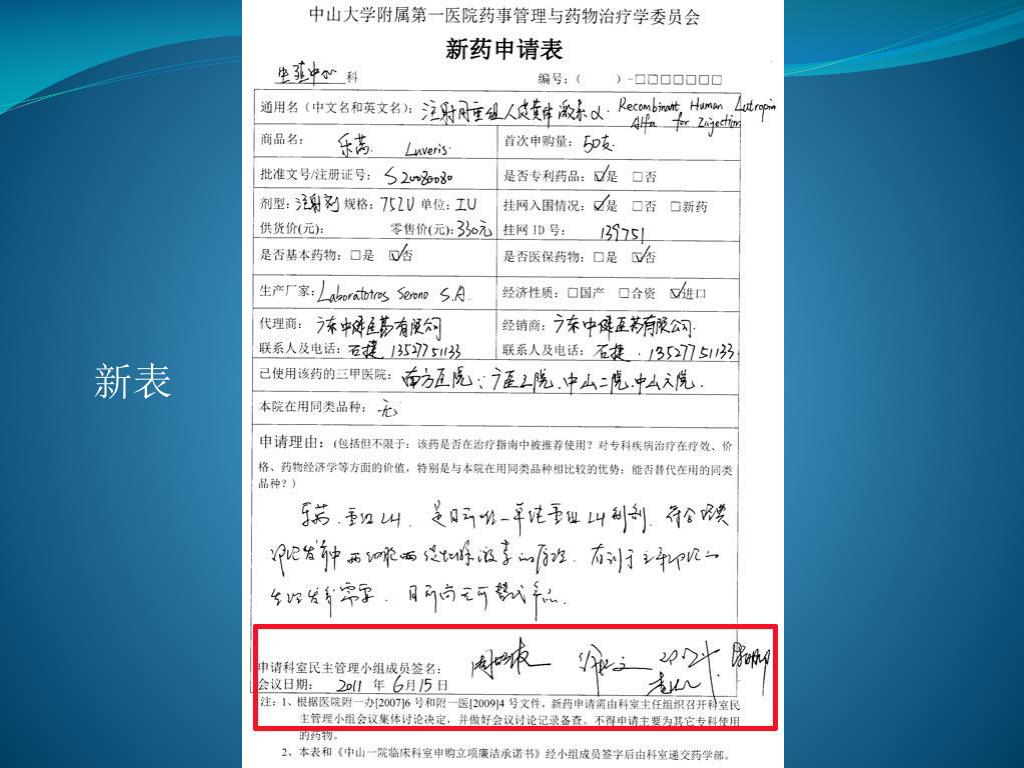 中山大学附属第一医院药事管理与药物治疗学委员会
新药申请表
生殖中心 科 编号：（ ）-□□□□□□□
通用名（中文名和英文名）： 注射用重组人促黄体激素α Recombinant Human Lutropin
Alfa for Injection
商品名： 乐芮 Luveris. 首次申购量： 50支.
批准文号/注册证号： S20080080 是否专利药品：☑是 □否
剂型：注射剂 规格：75IU 单位：IU 挂网入围情况：☑是 □否 □新药
供货价(元)： 零售价(元)：330元 挂网 ID 号： 139751
是否基本药物：□是 ☑否 是否医保药物：□是 ☑否
生产厂家：Laboratotros Serono S.A. 经济性质：□国产 □合资 ☑进口
代理商： 广东中健医药有限公司 经销商：广东中健医药有限公司.
联系人及电话：石捷 13527751133 联系人及电话： 石捷 . 13527751133
已使用该药的三甲医院：南方医院；广医三院.中山二院.中山六院.
本院在用同类品种：无
申请理由：(包括但不限于：该药是否在治疗指南中被推荐使用？对专科疾病治疗在疗效、价
格、药物经济学等方面的价值，特别是与本院在用同类品种相比较的优势；能否替代在用的同类
品种？)
乐芮.重组LH. 是目前唯一单纯重组LH制剂.符合
卵泡发育中两细胞两促性腺激素的原理. 有利于
生理发育需要. 目前尚无可替代产品.
申请科室民主管理小组成员签名：
会议日期： 2011 年 6 月 15 日
注：1、根据医院附一办[2007]6 号和附一医[2009]4 号文件，新药申请需由科室主任组织召开科室民
主管理小组会议集体讨论决定，并做好会议讨论记录备查。不得申请主要为其它专科使用
的药物。
2、本表和《中山一院临床科室申购立项廉洁承诺书》经小组成员签字后由科室递交药学部。
新表